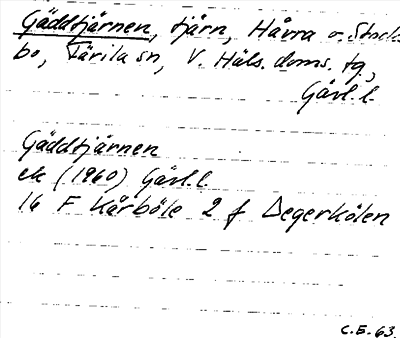 Gäddtjärnen, tjärn, Håvra o. Stocks-
bo, Färila sn, V. Häls. doms. tg,
Gävl. l.
Gäddtjärnen
ek (1960) Gävl. l.
16 F Kårböle 2 f Degerkölen
C.E. 63.